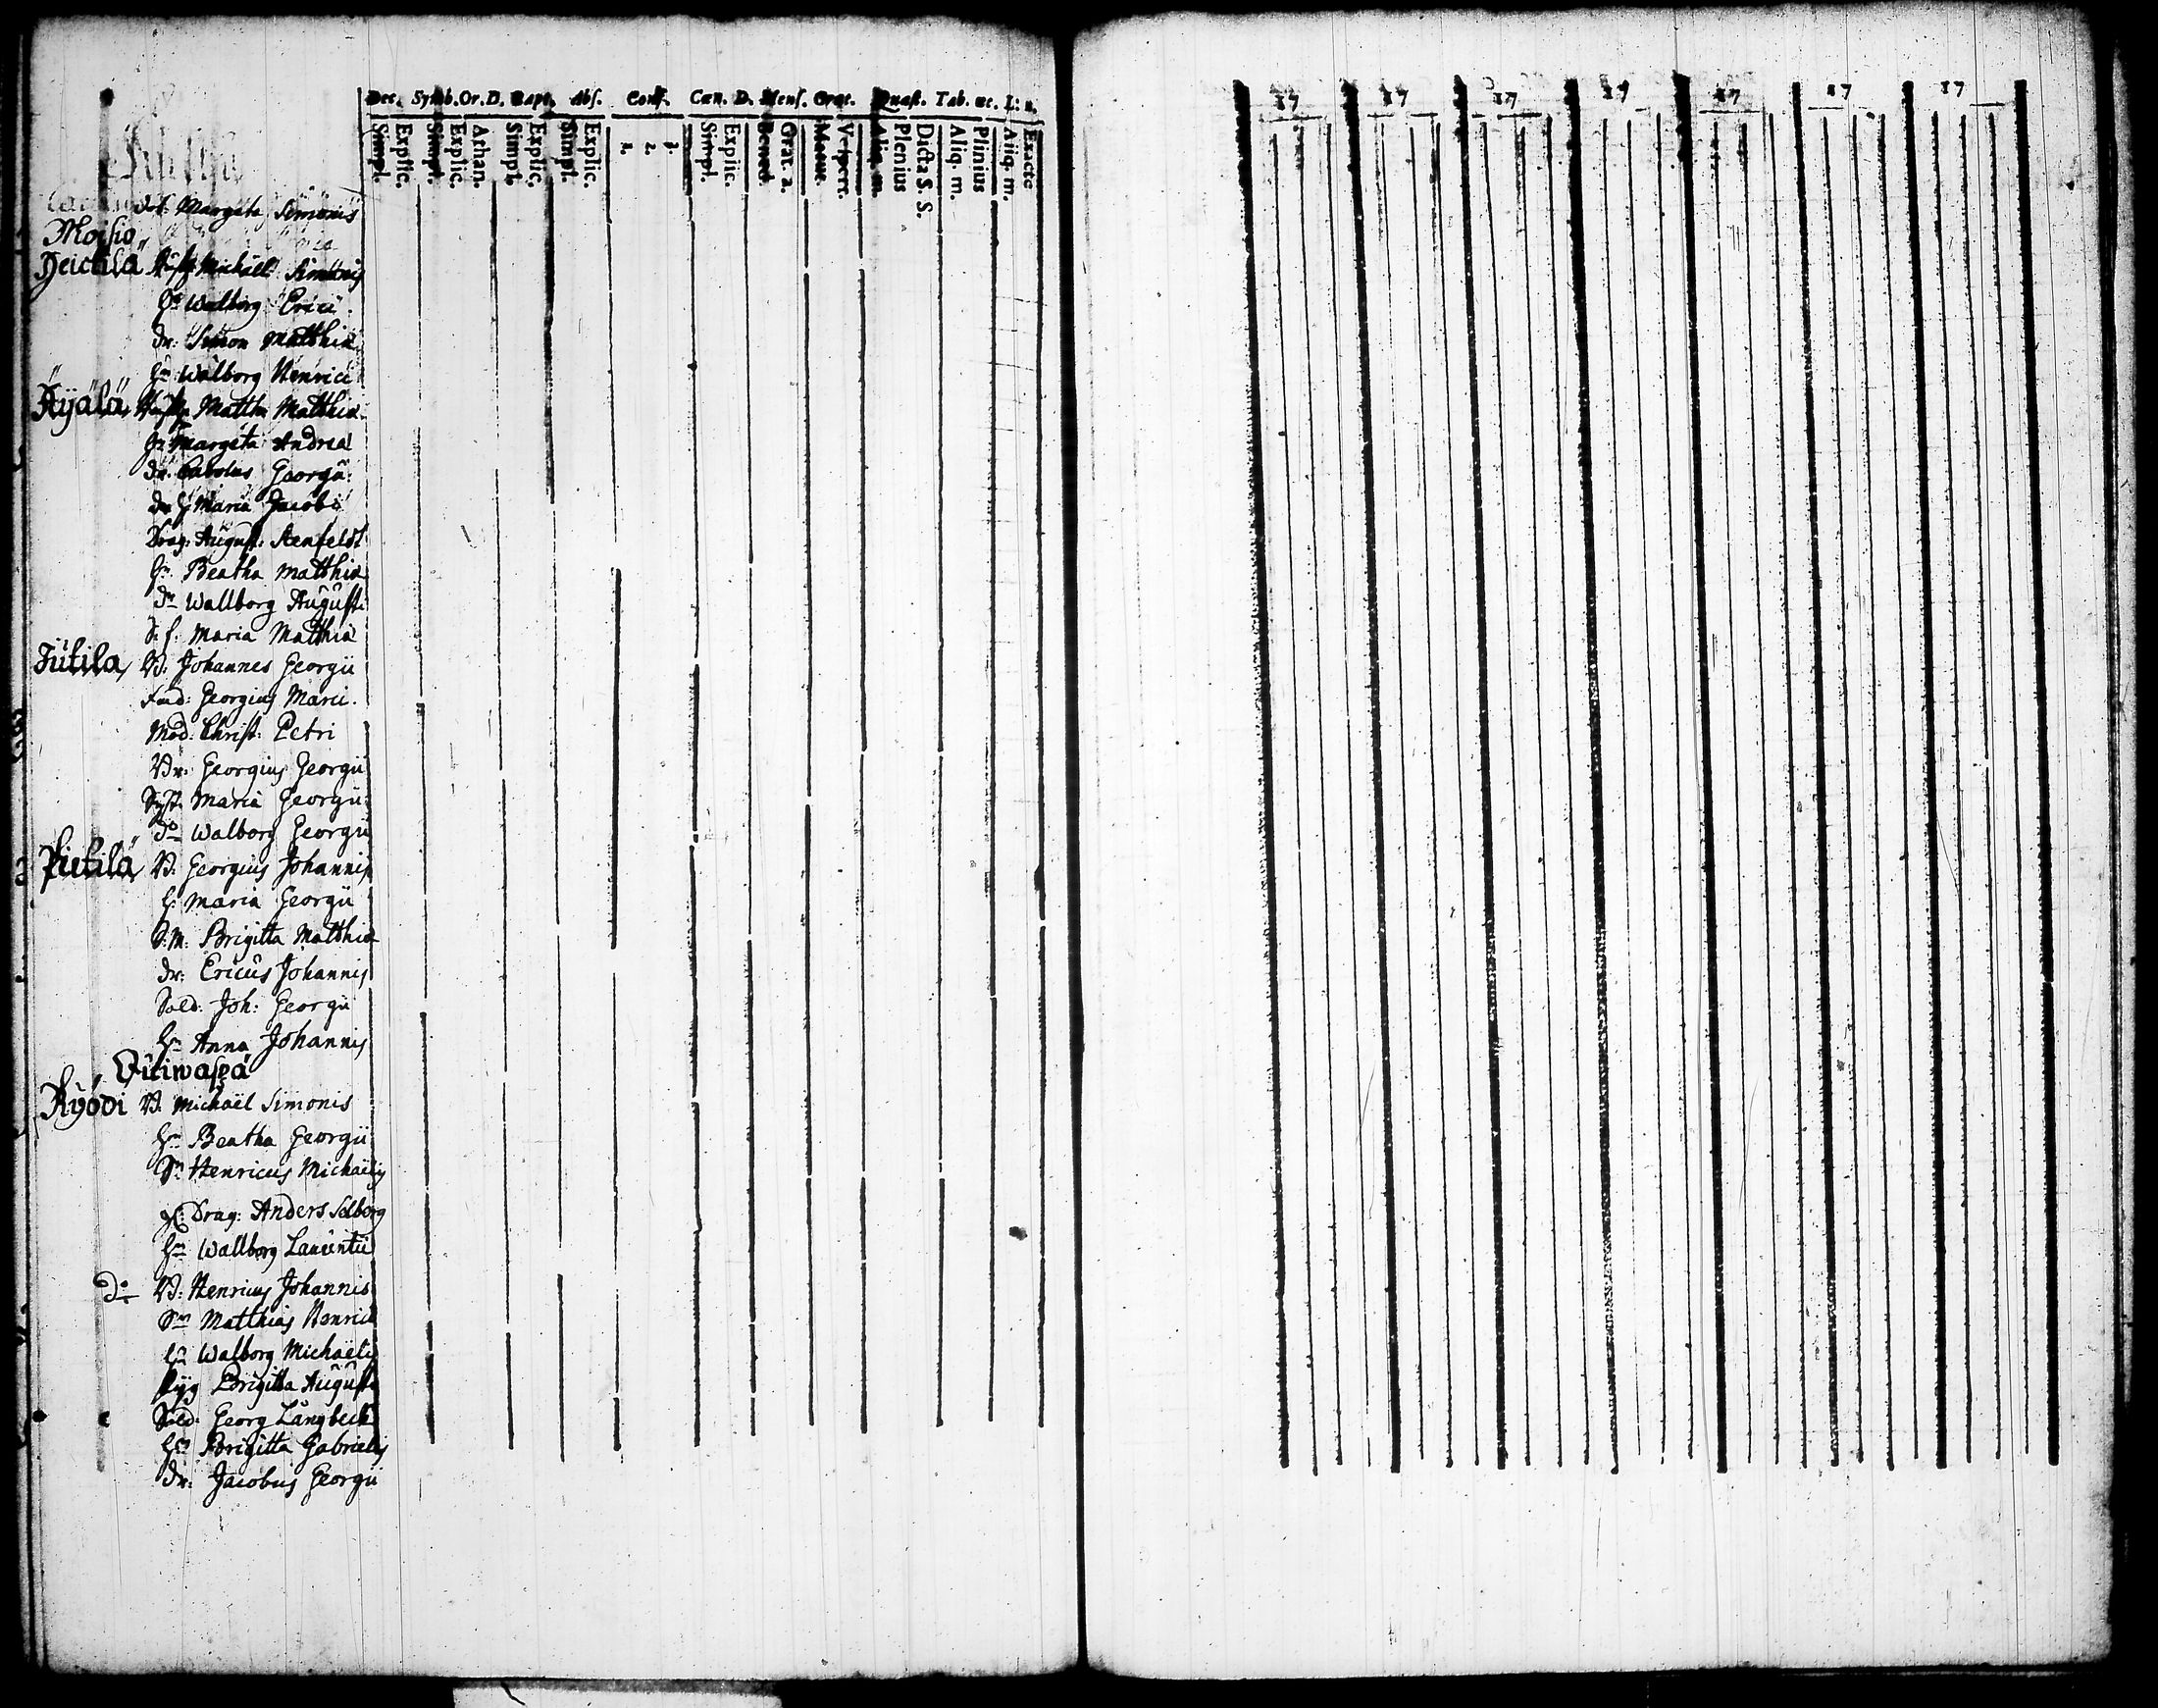 Dec. Symb. Or. D. Bapt. Abs. Conf. Cœn. D. Mens. Orat. Quæst. Tab. œc. L: n.
Simpl. Explic. Simpl. Explic. Athan. Simpl. Explic. Simpl. Explic. 1. 2. 3. Simpl. Explic. Bened. Grat. a. Matut. Vespert. Aliq. m. Plenius Dicta S. S. Aliq. m. Plinius Aliq. m. Exacte
17 17 17 17 17 17 17
Margeta Simonis
Moisio
Heickilä Michaël Simonis
Hu Walborg Erici
Dr: Simon Matthiæ
Hu Walborg Henrici
Äijälä Matths Matthiæ
Hu Margeta Andreæ
Dr. Carolus Georgii
Dr H Maria Jacobi
Drag: August: Stenfeldt
Hu Beatha Matthiæ
Dr Wallborg Augusti
S: f: Maria Matthiæ
Jutila B: Johannes Georgii
Fad: Georgius Marci.
Mod: Christ: Petri
Br: Georgius Georgii
Syst: Maria Georgii
Do Walborg Georgii
Pietilä B: Georgius Johannis
H: Maria Georgii
S: M: Brigitta Matthiæ
Dr: Ericus Johannis
Sold: Joh: Georgii
Hu Anna Johannis
Kyödi B. Michaël Simonis
Hu Beatha Georgii
Sn Henricus Michaëlis
Drag: Anders Selborg
Hu Wallborg Laurentii
Do B: Henricus Johannis
Sn Matthias Henrici
Hu Walborg Michaëlis
Pyg Brigitta Augusti
Sold: Georg Långbeck
Hu Brigitta Gabrielis
Dr: Jacobus Georgii